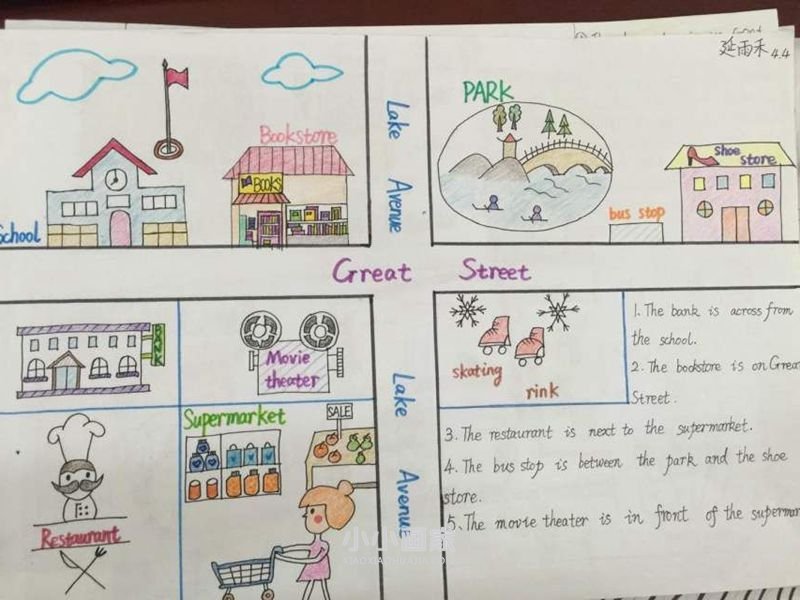 延雨禾 4.4
PARK
Bookstore
BOOKS
School
Lake Avenue
shoe
store
bus stop
Great Street
BANK
Movie
theater
skating
rink
Lake Avenue
Supermarket
SALE
Restaurant
1. The bank is across from
the school.
2. The bookstore is on Great
Street.
3. The restaurant is next to the supermarket.
4. The bus stop is between the park and the shoe
store.
5、The movie theater is in front of the supermar
小小画家